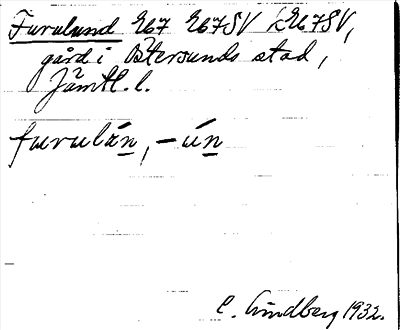 Furulund 2U67 2U67SV /2U67SV,
gård i Östersunds stad,
Jämtl. l.
furulán, -ún
C. Lindberg 1932.